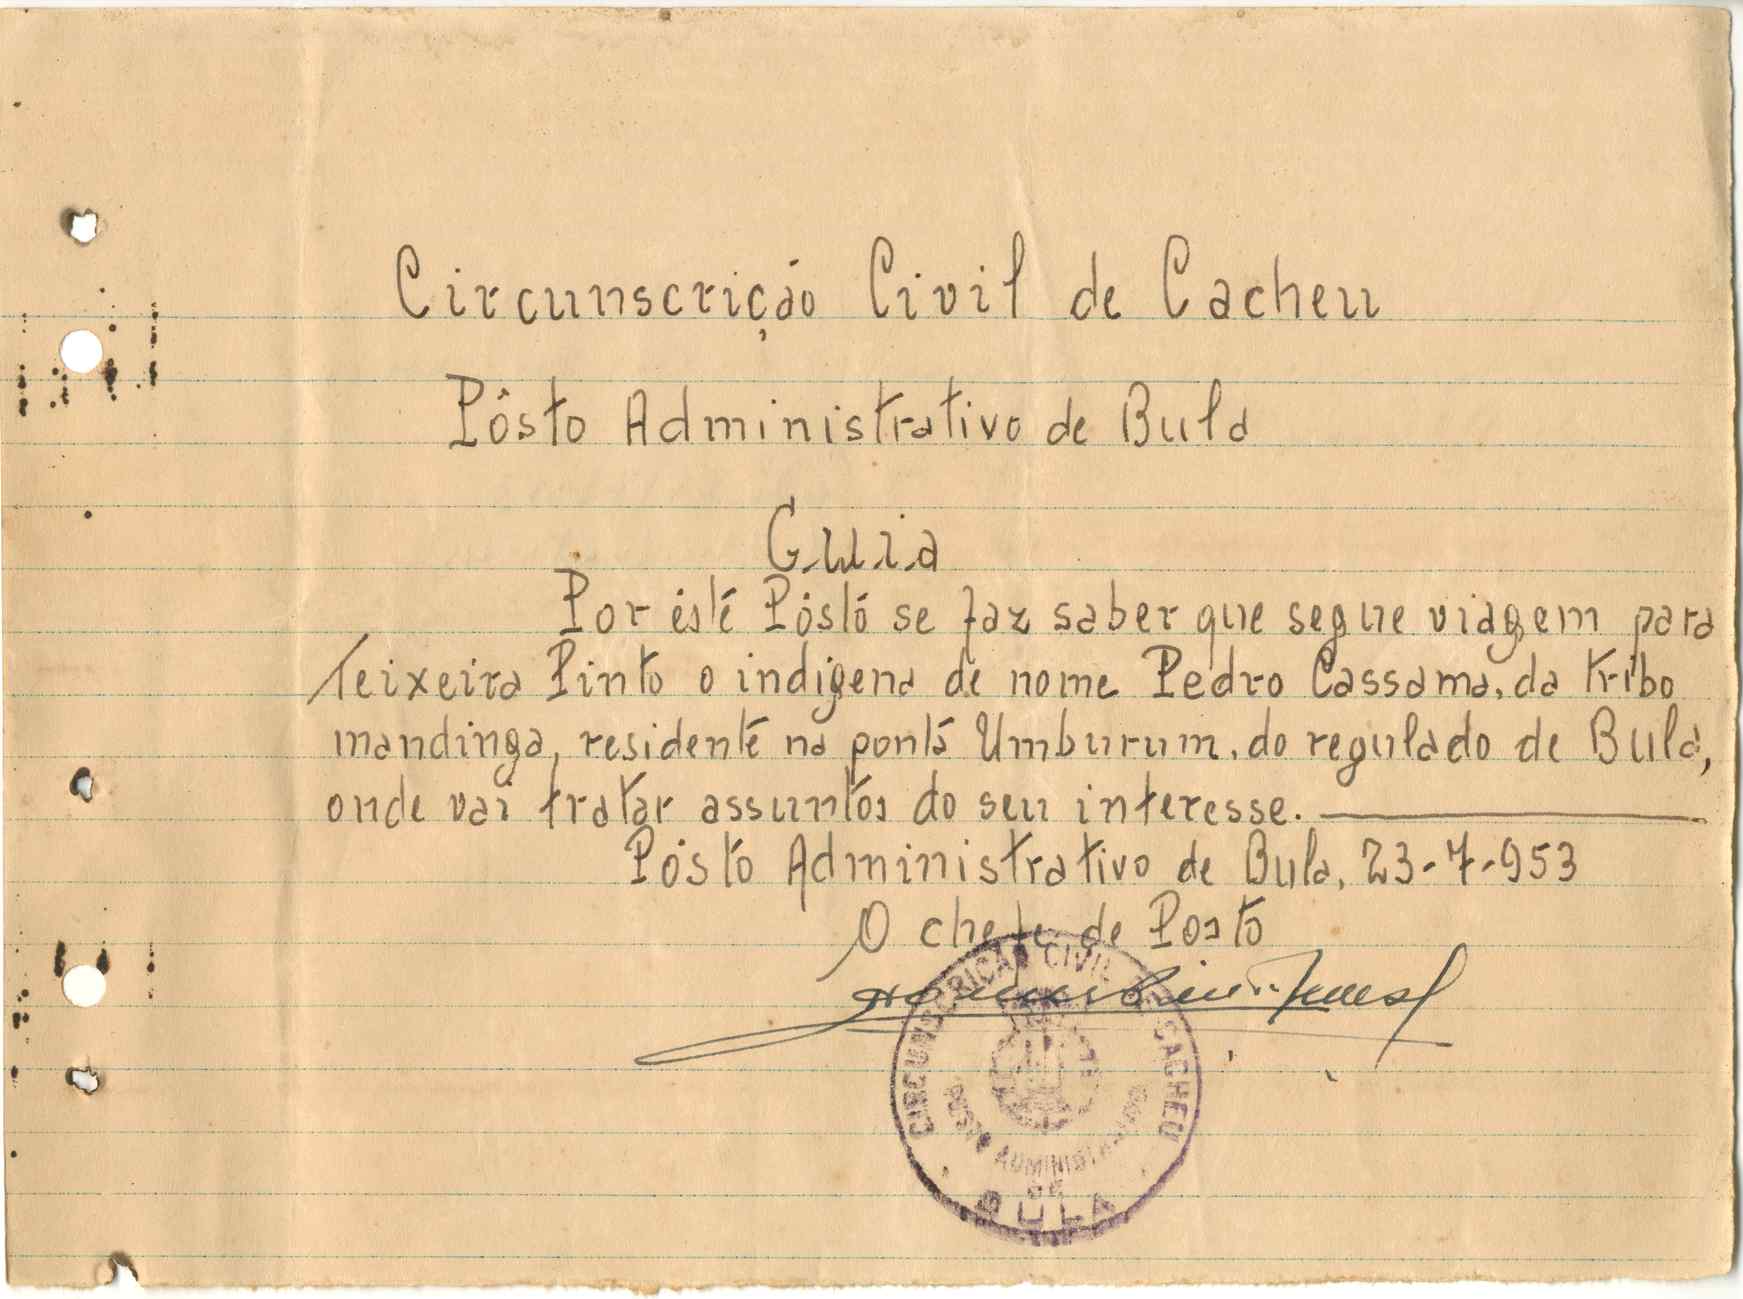 Circunscrição Civil de Cacheu
Pôsto Administrativo de Bula
Guia
Por éste Pósto se faz saber que segue viagem para
Teixeira Pinto o indigena de nome Pedro Cassama, da tribo
mandinga, residente na ponta Umburum, do regulado de Bula,
onde vai tratar assuntos do seu interesse.
Pósto Administrativo de Bula, 23-7-953
O chefe de Posto
CIRCUNSCRIÇÃO CIVIL DE CACHEU
POSTO ADMINISTRATIVO
DE
BULA